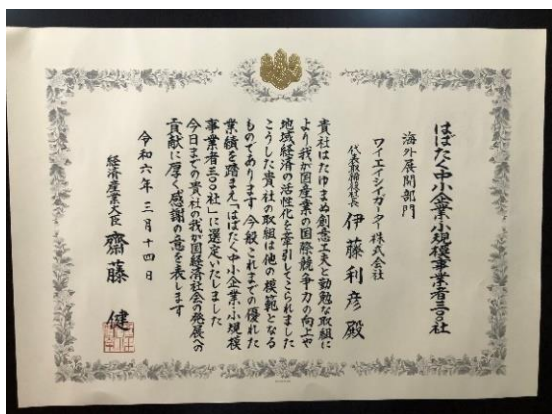 はばたく中小企業・小規模事業者三〇〇社
海外展開部門
ワイエイシイガーター株式会社
代表取締役社長 伊藤利彦殿
貴社はたゆまぬ創意工夫と勤勉な取組に
より我が国産業の国際競争力の向上や
地域経済の活性化を牽引してこられました
こうした貴社の取組は他の模範となる
ものであります 今般これまでの優れた
業績を踏まえ「はばたく中小企業・小規模
事業者三〇〇社」に選定いたしました
今日までの貴社の我が国経済社会の発展への
貢献に厚く感謝の意を表します
令和六年三月十四日
経済産業大臣 齋藤健